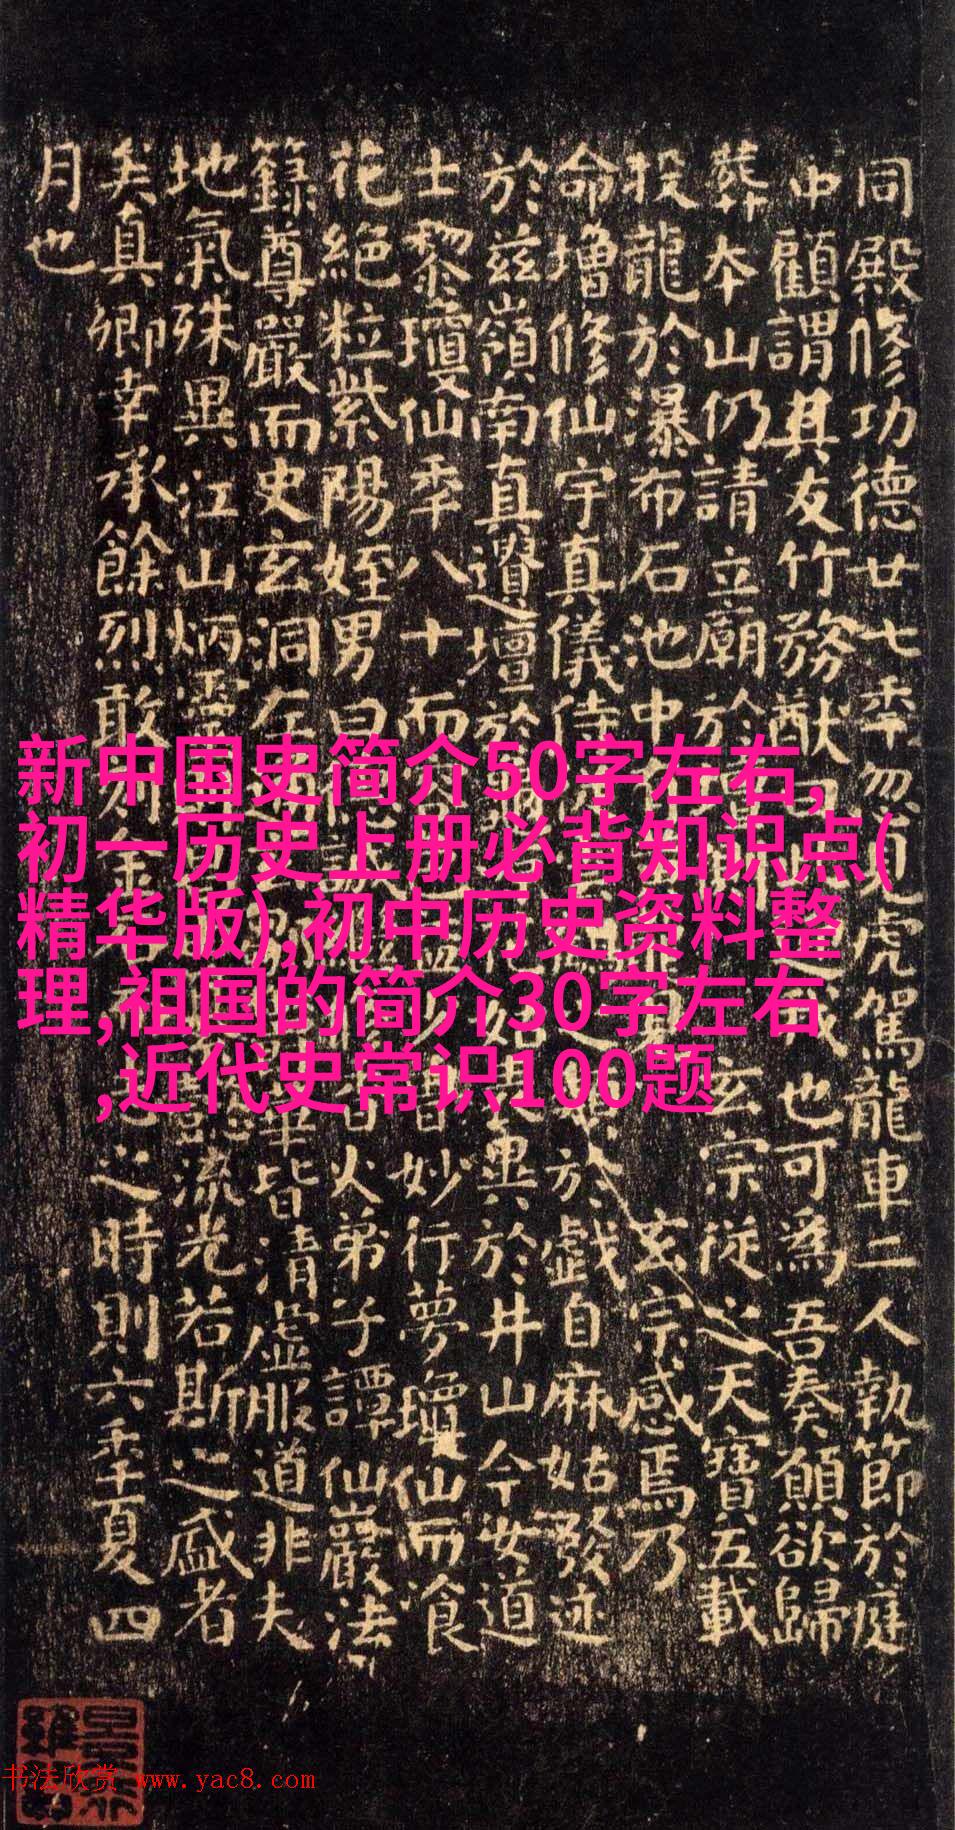 同殿修功德廿七年忽見虎駕龍車二人執節於庭
中顧謂其友竹務猷曰我也可為吾奏願欲歸
葬本山仍請立廟於玄宗從之天寶五載
投龍於瀑布石池中玄宗感焉乃
命增修仙宇真儀侍之於戲自麻姑發迹
於茲嶺南真遺壇於異於井山今女道
士黎瓊仙年八十而容益少曾妙行夢瓊仙而飡
花絕粒紫陽姪男曰香火弟子譚仙巖法
籙尊嚴而史玄洞左華皆清虛服道非夫
地氣殊異江山炳靈懿流光若斯之盛者
矣真卿幸承餘烈敢刻金石之時則六年夏四
月也
新中国史简介50字左右,
初一历史上册必背知识点(
精华版),初中历史资料整
理,祖国的简介30字左右
,近代史常识100题
书法欣赏 www.yac8.com